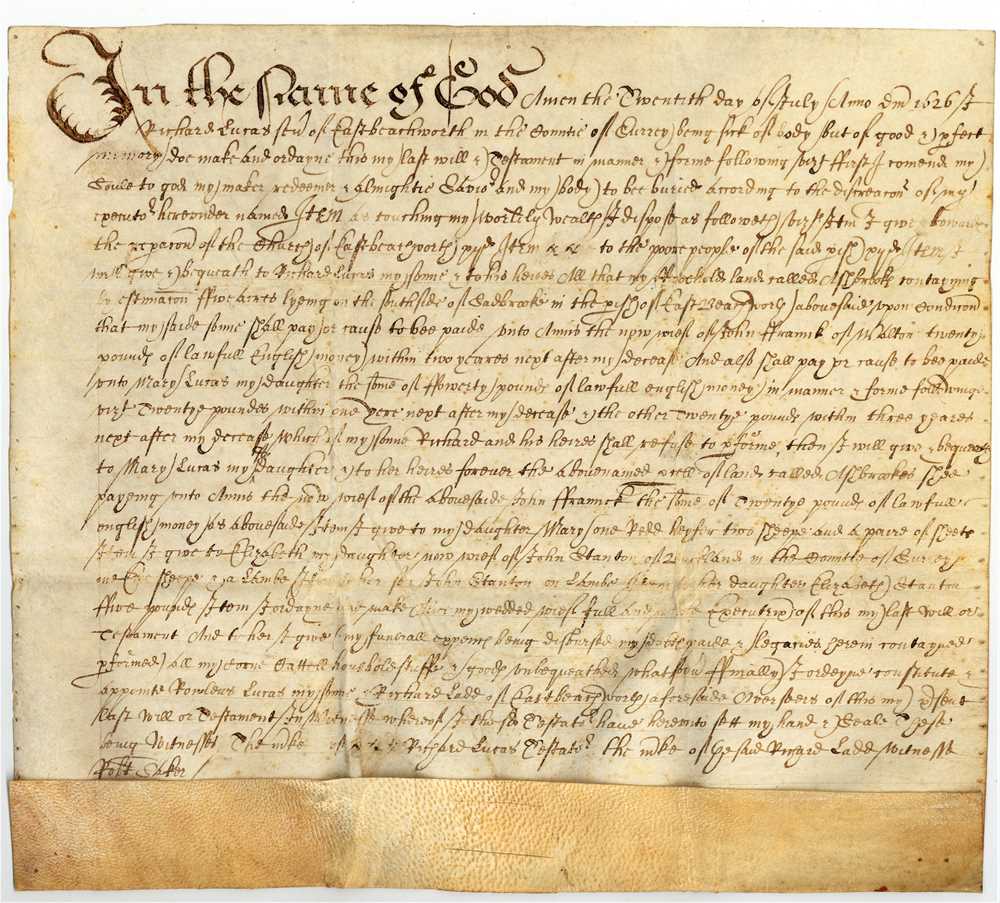 In the Name of God Amen the Twentith day of July Anno Dm 1626 I
Richard Lucas senr of Eastbeachworth in the Countie of Surrey being sick of body but of good & pfect
memory doe make and ordayne this my last will & Testament in manner & forme following vizt ffirst I comend my
Soule to god my maker redeemer & almightie Savior and my body to bee buried according to the discreacon of my
executor hereunder named ITEM as touching my worldly wealth I dispose as followeth vizt Itm I give towards
the repacon of the Church of Eastbeachworth Item to the poore people of the said pish ITEM I
will give & bequeath to Richard Lucas my sonne & to his heires All that my ffreehold land called Ashbrooks contayning
by estimacon ffive acres lyeing on the southside of Gadbrooke in the pish of East Beachworth abovesaid upon Condicon
that my saide sonne shall pay or cause to bee paide unto Annis the now wief of John ffranck of Walton twenty
pounds of lawfull English money within two yeares next after my decease And also shall pay or cause to bee paide
unto Mary Lucas my daughter the some of ffowerty pounds of lawfull english money in manner & forme followinge
vizt Twentye poundes within one yere next after my decease & the other Twentye pounds within three yeares
next after my decease which if my sonne Richard and his heires shall refuse to pforme, then I will give & bequeath
to Mary Lucas my daughter & to her heires forever the abovenamed pcell of land called Ashbrookes shee
payeing unto Annis the now wief of the abovesaide John ffranck the some of Twentye pounds of lawfull
english money as abovesaide Item I give to my daughter Mary one Redd heyfer two sheepe and a paire of sheets
Item I give to Elizabeth my daughter now wief of John Stanton of in the Countie of Surrey
one Ewe sheepe & a Lambe John Stanton on Lambe her daughter Elizabeth Stanton
ffive pounds Item I ordayne and make my wedded wief full and Executrix of this my last Will or
Testament And to her I give my funerall expences being disbursed my debts paide & Legacies herein contayned
pformed all my Corne Cattell household stuffe & goods unbequeathed whatsoevr ffinally I ordeyne constitute &
appointe Rowland Lucas my sonne & Richard Ladd of Eastbeachworth aforesaide Overseers of this my psent
Last Will or Testament In Witnesse whereof I the sd Testator have hereunto sett my hand & Seale These
being Witnesses The mke of Richard Lucas Testator the mke of the said Richard Ladd witnesse
Robt Saker